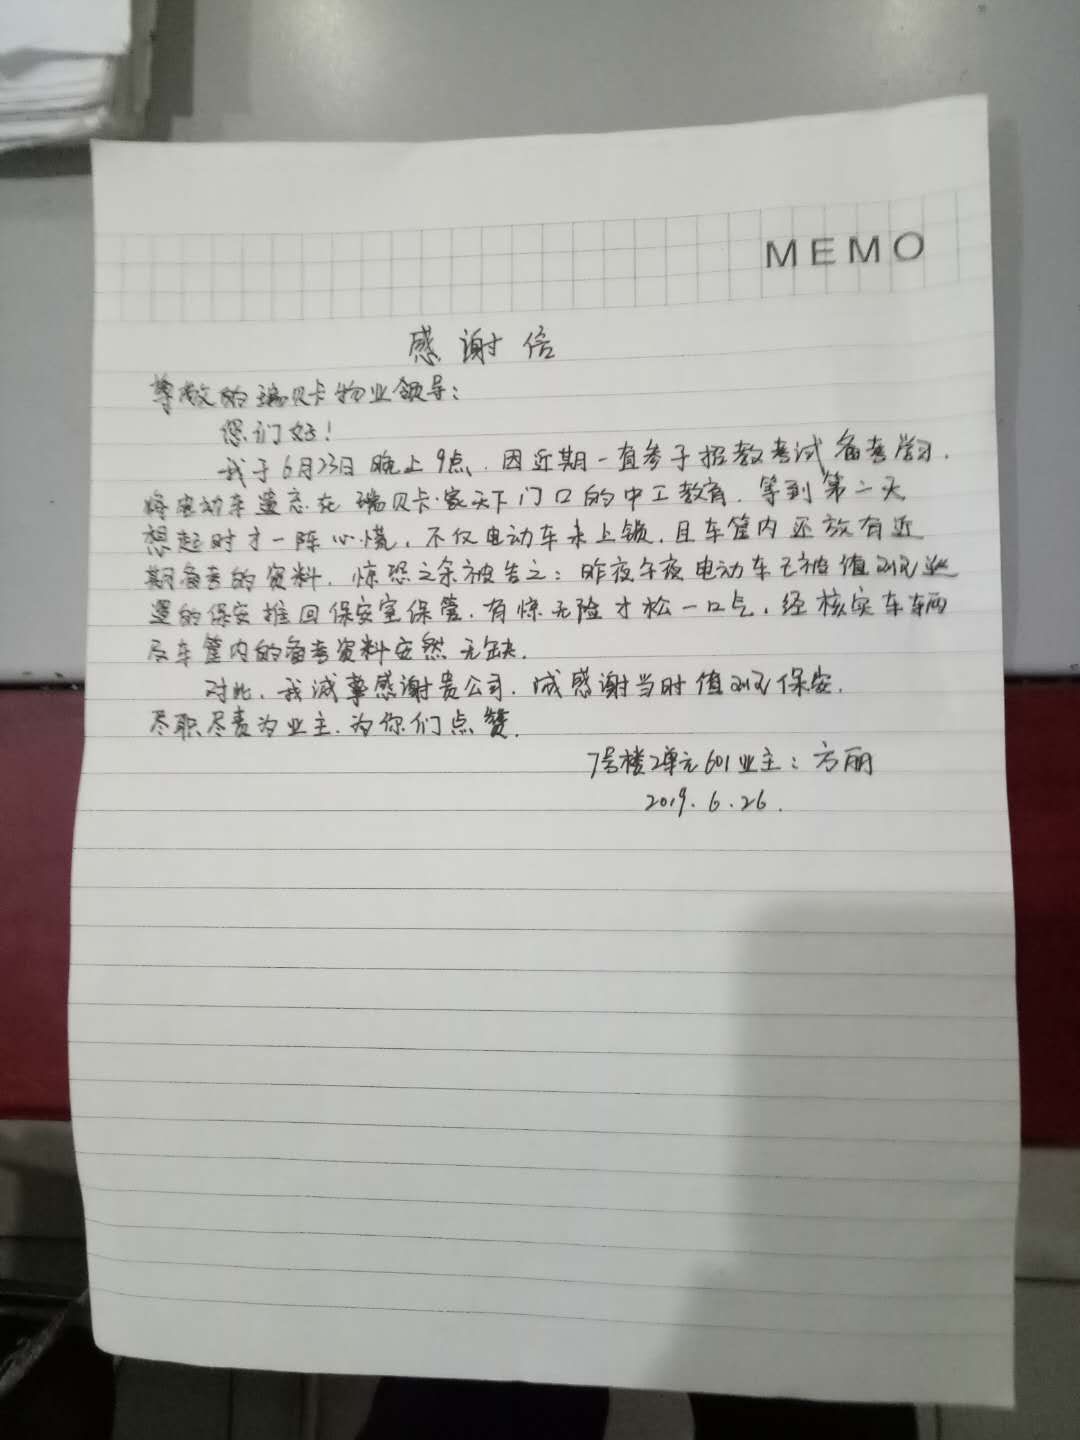 MEMO
感谢信
尊敬的瑞贝卡物业领导：
您们好！
我于6月23日晚上9点，因近期一直参于招教考试备考学习，
将电动车遗忘在瑞贝卡·家天下门口的中工教育，等到第二天
想起时才一阵心慌，不仅电动车未上锁，且车筐内还放有近
期备考的资料，惊恐之余被告之：昨夜午夜电动车已被值班巡
逻的保安推回保安室保管，有惊无险才松一口气，经核实车辆
及车筐内的备考资料安然无缺。
对此，我诚挚感谢贵公司，诚感谢当时值班保安，
尽职尽责为业主，为你们点赞。
7号楼2单元601业主：方丽
2019.6.26.